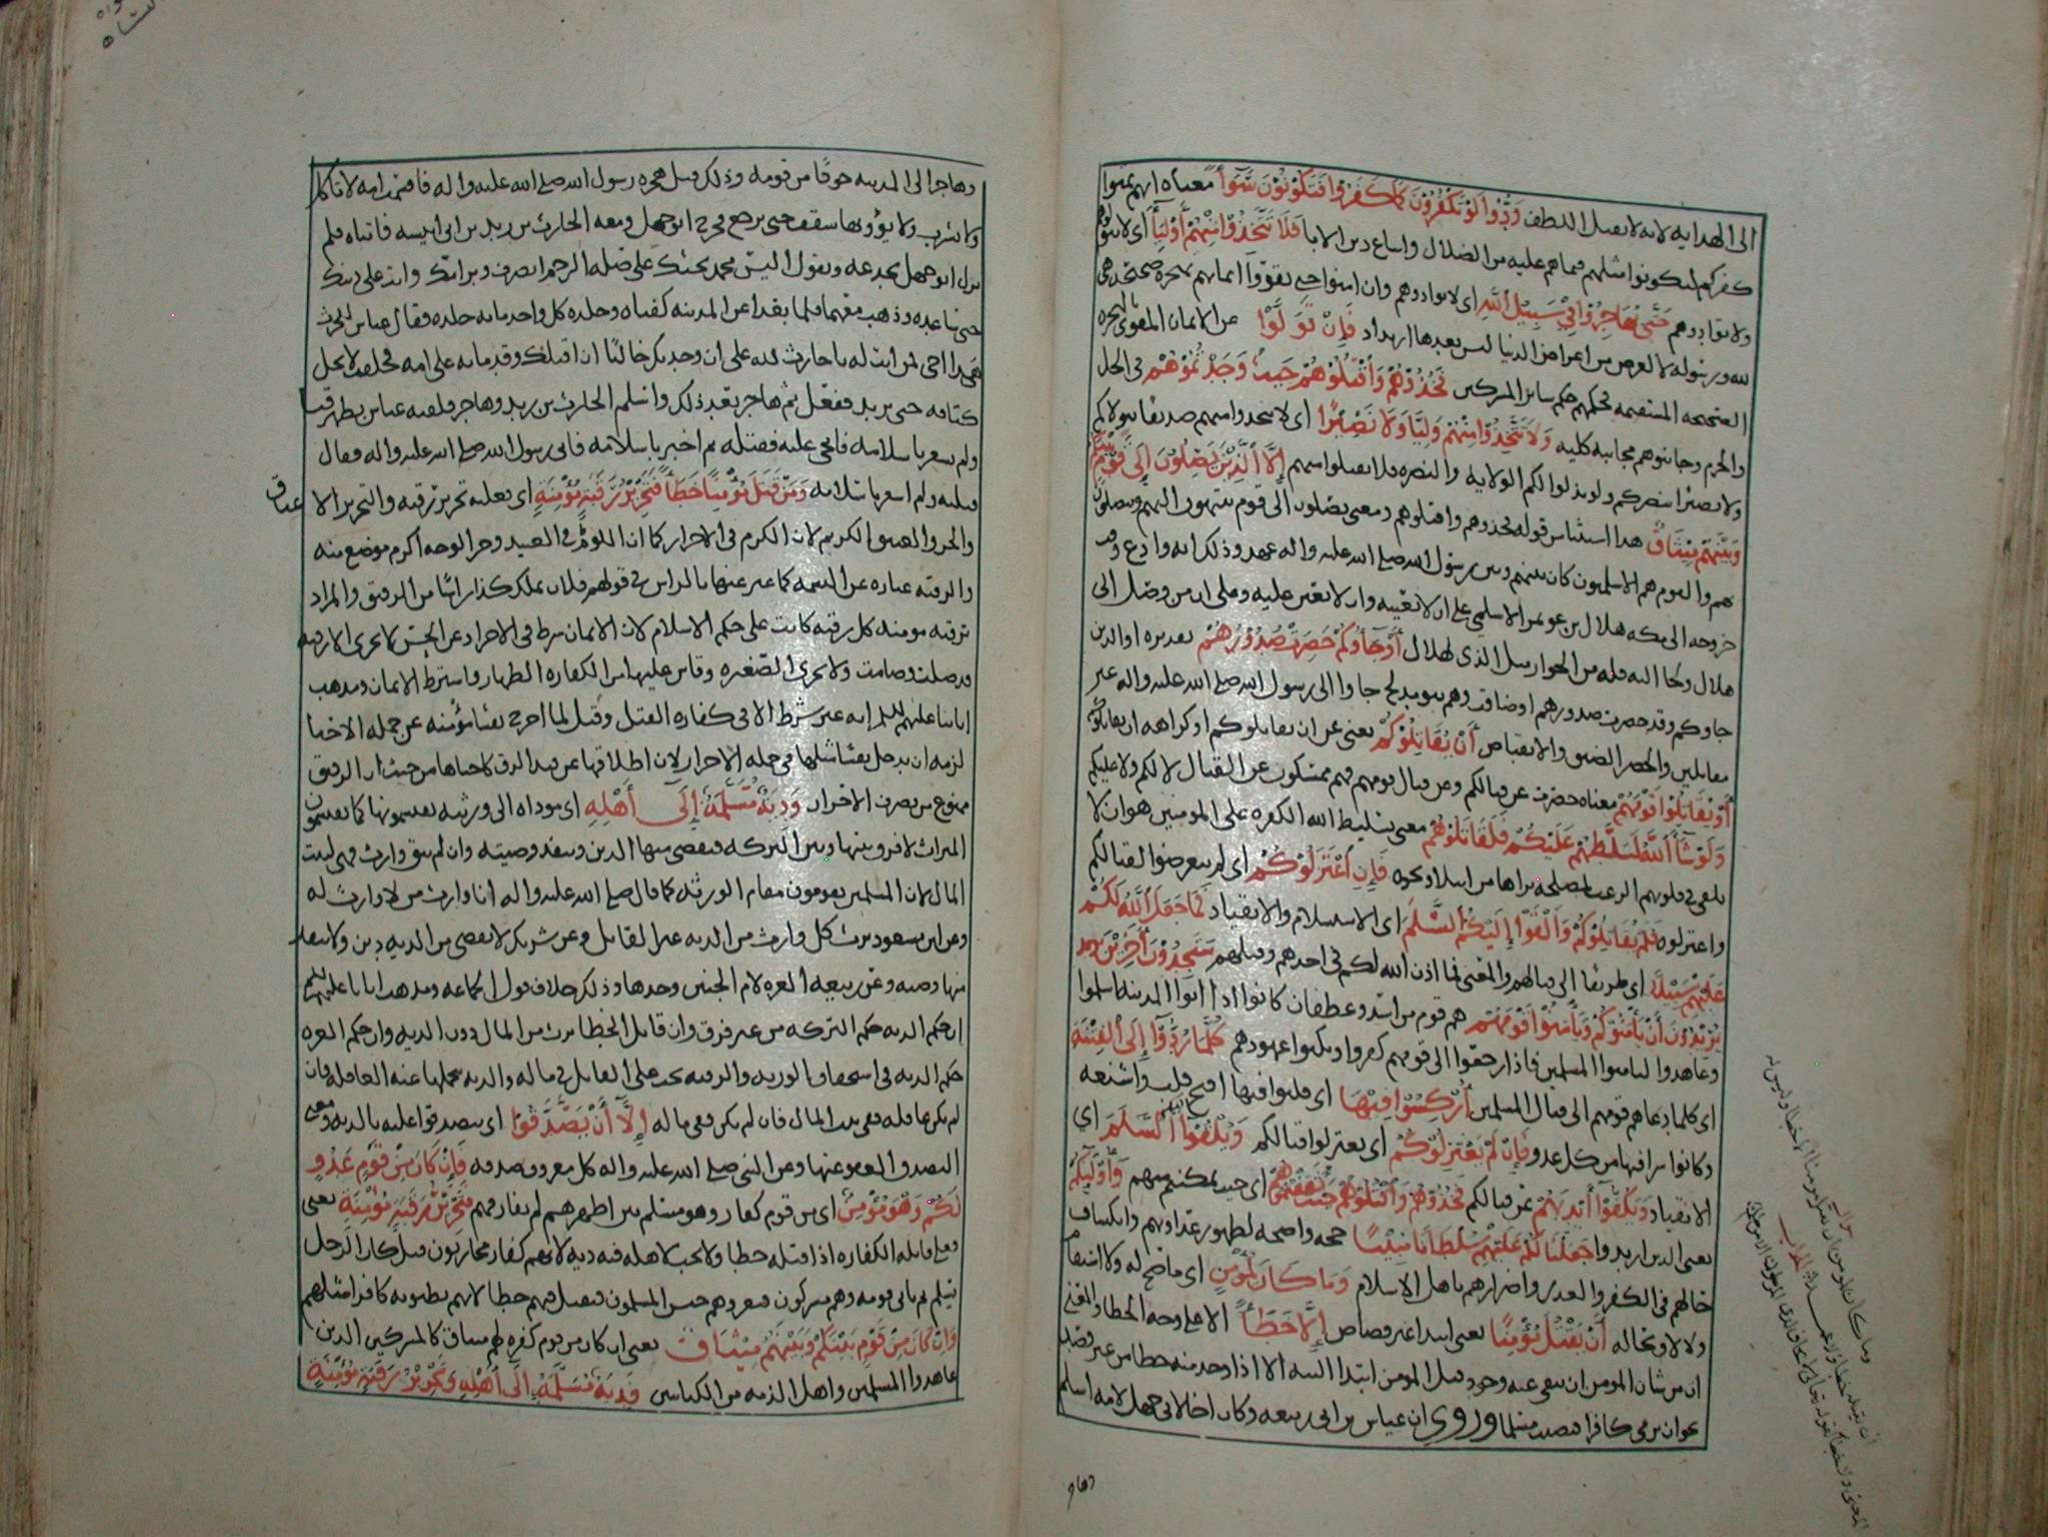 الى الهدايه لانه لا يقبل اللطف وَدُّوا لَوْ تَكْفُرُونَ كَمَا كَفَرُوا فَتَكُونُونَ سَوَآءً معناه انهم تمنوا
كفركم لتكونوا مثلهم فيما هم عليه من الضلال واتباع دين الابا فَلَا تَتَّخِذُوا مِنْهُمْ أَوْلِيَآءَ اى لا
ولا توادوهم حَتَّى يُهَاجِرُوا فِي سَبِيلِ اللَّهِ اى لا توادوهم وان امنوا حتى يقووا ايمانهم بهجره صحيحه هى
لله ورسوله لا لغرض من اغراض الدنيا ليس بعدها ارتداد فَإِنْ تَوَلَّوْا عن الايمان المقوى بالهجره
الصحيحه المستقيمه فحكمهم حكم سائر المشركين فَخُذُوهُمْ وَاقْتُلُوهُمْ حَيْثُ وَجَدْتُمُوهُمْ فى الحل
والحرم وجانبوهم مجانبه كليه وَلَا تَتَّخِذُوا مِنْهُمْ وَلِيًّا وَلَا نَصِيرًا اى لا تتخذوا منهم صديقا يتولاكم
ولا نصيرا ينصركم ولو بذلوا لكم الولايه والنصره فلا تقبلوا منهم إِلَّا الَّذِينَ يَصِلُونَ إِلَى قَوْمٍ بَيْنَكُمْ
وَبَيْنَهُمْ مِيثَاقٌ هذا استثنا من قوله فخذوهم واقتلوهم ومعنى يصلون الى قوم ينتهون اليهم ويتصلون
بهم والقوم هم الاسلميون كان بينهم وبين رسول الله صلى الله عليه واله عهد وذلك انه وادع وقت
خروجه الى مكه هلال بن عويمر الاسلمى على ان لا يعينه ولا يعين عليه وعلى ان من وصل الى
هلال ولجا اليه فله من الجوار مثل الذى لهلال أَوْ جَآءُوكُمْ حَصِرَتْ صُدُورُهُمْ تقديره او الذين
جاوكم وقد حصرت صدورهم اى ضاقت وهم بنو مدلج جاوا الى رسول الله صلى الله عليه واله غير
مقاتلين والحصر الضيق والانقباض أَنْ يُقَاتِلُوكُمْ يعنى عن ان يقاتلوكم او كراهه ان يقاتلوكم
أَوْ يُقَاتِلُوا قَوْمَهُمْ معناه حصرت عن قتالكم وعن قتال قومهم فهم ممسكون عن القتال لا لكم ولا عليكم
وَلَوْ شَآءَ اللَّهُ لَسَلَّطَهُمْ عَلَيْكُمْ فَلَقَاتَلُوكُمْ معنى تسليط الله الكفره على المومنين هو ان لا
يلقى فى قلوبهم الرعب لمصلحه يراها من ابتلا ونحوه فَإِنِ اعْتَزَلُوكُمْ اى لم يتعرضوا لقتالكم
واعتزلوه فَلَمْ يُقَاتِلُوكُمْ وَأَلْقَوْا إِلَيْكُمُ السَّلَمَ اى الاستسلام والانقياد فَمَا جَعَلَ اللَّهُ لَكُمْ
عَلَيْهِمْ سَبِيلًا اى طريقا الى قتالهم والمعنى فما اذن الله لكم فى اخذهم وقتلهم سَتَجِدُونَ آخَرِينَ
يُرِيدُونَ أَنْ يَأْمَنُوكُمْ وَيَأْمَنُوا قَوْمَهُمْ هم قوم من اسد وغطفان كانوا اذا اتوا المدينه اسلموا
وعاهدوا ليامنوا المسلمين فاذا رجعوا الى قومهم كفروا ونكثوا عهودهم كُلَّمَا رُدُّوا إِلَى الْفِتْنَةِ
اى كلما دعاهم قومهم الى قتال المسلمين أُرْكِسُوا فِيهَا اى قلبوا فيها اقبح قلب واشنعه
وكانوا شرا فيها من كل عدو فَإِنْ لَمْ يَعْتَزِلُوكُمْ اى يعتزلوا قتالكم وَيُلْقُوا إِلَيْكُمُ السَّلَمَ اى
الانقياد وَيَكُفُّوا أَيْدِيَهُمْ عن قتالكم فَخُذُوهُمْ وَاقْتُلُوهُمْ حَيْثُ ثَقِفْتُمُوهُمْ اى حيث تمكنتم منهم وَأُولَئِكُمْ
يعنى الذين اريدوا جَعَلْنَا لَكُمْ عَلَيْهِمْ سُلْطَانًا مُبِينًا حجه واضحه لظهور عداوتهم وانكشاف
حالهم فى الكفر والغدر واضرارهم باهل الاسلام وَمَا كَانَ لِمُؤْمِنٍ اى ما صح له ولا استقام
ولا لاق بحاله أَنْ يَقْتُلَ مُؤْمِنًا يعنى ابتدا غير قصاص إِلَّا خَطَأً الا على وجه الخطا والمعنى
ان من شان المومن ان ينتفى عنه وجود قتل المومن ابتدا البته الا اذا وجد منه خطا من غير قصد
نحو ان يرمى كافرا فيصيب مسلما وروى ان عياش بن ابى ربيعه وكان اخا لابى جهل لامه اسلم
وهاجر
وهاجر الى المدينه خوفا من قومه وذلك قبل هجره رسول الله صلى الله عليه واله فاقسمت امه لا تاكل
ولا تشرب ولا يؤويها سقف حتى يرجع فخرج ابو جهل ومعه الحارث بن زيد بن ابى انيسه فاتياه فلم
يزل ابو جهل يخدعه ويقول اليس محمد يحثك على صله الرحم انصرف وبر امك وانت على دينك
حتى تابعه وذهب معهما فلما بعدا عن المدينه كتفاه وجلده كل واحد مايه جلده فقال عياش للحرث
هذا اخى فمن انت له يا حارث لله على ان وجدتك خاليا ان اقتلك وقدما به على امه فحلفت لا يحل
كتافه حتى يرتد ففعل ثم هاجر بعد ذلك واسلم الحارث بن زيد وهاجر فلقيه عياش بظهر قبا
ولم يشعر باسلامه فانحى عليه فقتله ثم اخبر باسلامه فاتى رسول الله صلى الله عليه واله وقال
قتلته ولم اشعر باسلامه وَمَنْ قَتَلَ مُؤْمِنًا خَطَأً فَتَحْرِيرُ رَقَبَةٍ مُؤْمِنَةٍ اى فعليه تحرير رقبه والتحرير الا عتاق
والحر والعتيق الكريم لان الكرم فى الاحرار كما ان اللؤم فى العبيد وحر الوجه اكرم موضع منه
والرقبه عباره عن النسمه كما عبر عنها بالراس فى قولهم فلان يملك كذا راسا من الرقيق والمراد
برقبه مومنه كل رقبه كانت على حكم الاسلام لان الايمان شرط فى الاحرار عن الحسن لا تجزى الا رقبه
قد صلت وصامت ولا تجزى الصغيره وقاس عليها الكفاره الظهار واشترط الايمان ومذهب
ابائنا عليهم السلام انه غير شرط الا فى كفاره القتل وقيل لما اخرج نفسا مؤمنه عن جمله الاحيا
لزمه ان يدخل نفسا مثلها فى جمله الاحرار لان اطلاقها من قيد الرق كاحياها من حيث ان الرقيق
ممنوع من تصرف الاحرار وَدِيَةٌ مُسَلَّمَةٌ إِلَى أَهْلِهِ اى موداه الى ورثته يقتسمونها كما يقتسمون
الميراث لا فرق بينها وبين التركه فيقضى منها الدين وينفذ وصيته وان لم يبق وارث فهى لبيت
المال لان المسلمين يقومون مقام الورثه كما قال صلى الله عليه واله أنا وارث من لا وارث له
وعن ابن مسعود يرث كل وارث من الديه غير القاتل وعن شريك لا يقضى من الديه دين ولا تنفذ
منها وصيه وعن ربيعه الغره لام الجنين وحدها وذلك خلاف قول الجماعه ومذهب ابائنا عليهم السلام
ان حكم الديه حكم التركه من غير فرق وان قاتل الخطا يرث من المال دون الديه وان حكم الغره
حكم الديه فى استحقاق الوريث والرقبه تجب على القاتل فى ماله والديه تحملها عنه العاقله فان
لم يكن عاقله ففى بيت المال فان لم يكن ففى ماله إِلَّا أَنْ يَصَّدَّقُوا اى يتصدقوا عليه بالديه ومعنى
التصدق العفو عنها وعن النبى صلى الله عليه واله كل معروف صدقه فَإِنْ كَانَ مِنْ قَوْمٍ عَدُوٍّ
لَكُمْ وَهُوَ مُؤْمِنٌ اى من قوم كفار وهو مسلم بين اظهرهم لم يفارقهم فَتَحْرِيرُ رَقَبَةٍ مُؤْمِنَةٍ يعنى
فعلى قاتله الكفاره اذا قتله خطا ولا تجب لاهله فيه ديه لانهم كفار محاربون قيل كان الرجل
يسلم ثم ياتى قومه وهم مشركون فيغزوهم جيش المسلمون فيقتل فيهم خطا لانهم يظنونه كافرا مثلهم
وَإِنْ كَانَ مِنْ قَوْمٍ بَيْنَكُمْ وَبَيْنَهُمْ مِيثَاقٌ يعنى ان كان من قوم كفره لهم ميثاق كالمشركين الذين
عاهدوا المسلمين واهل الذمه من الكتابيين فَدِيَةٌ مُسَلَّمَةٌ إِلَى أَهْلِهِ وَتَحْرِيرُ رَقَبَةٍ مُؤْمِنَةٍ